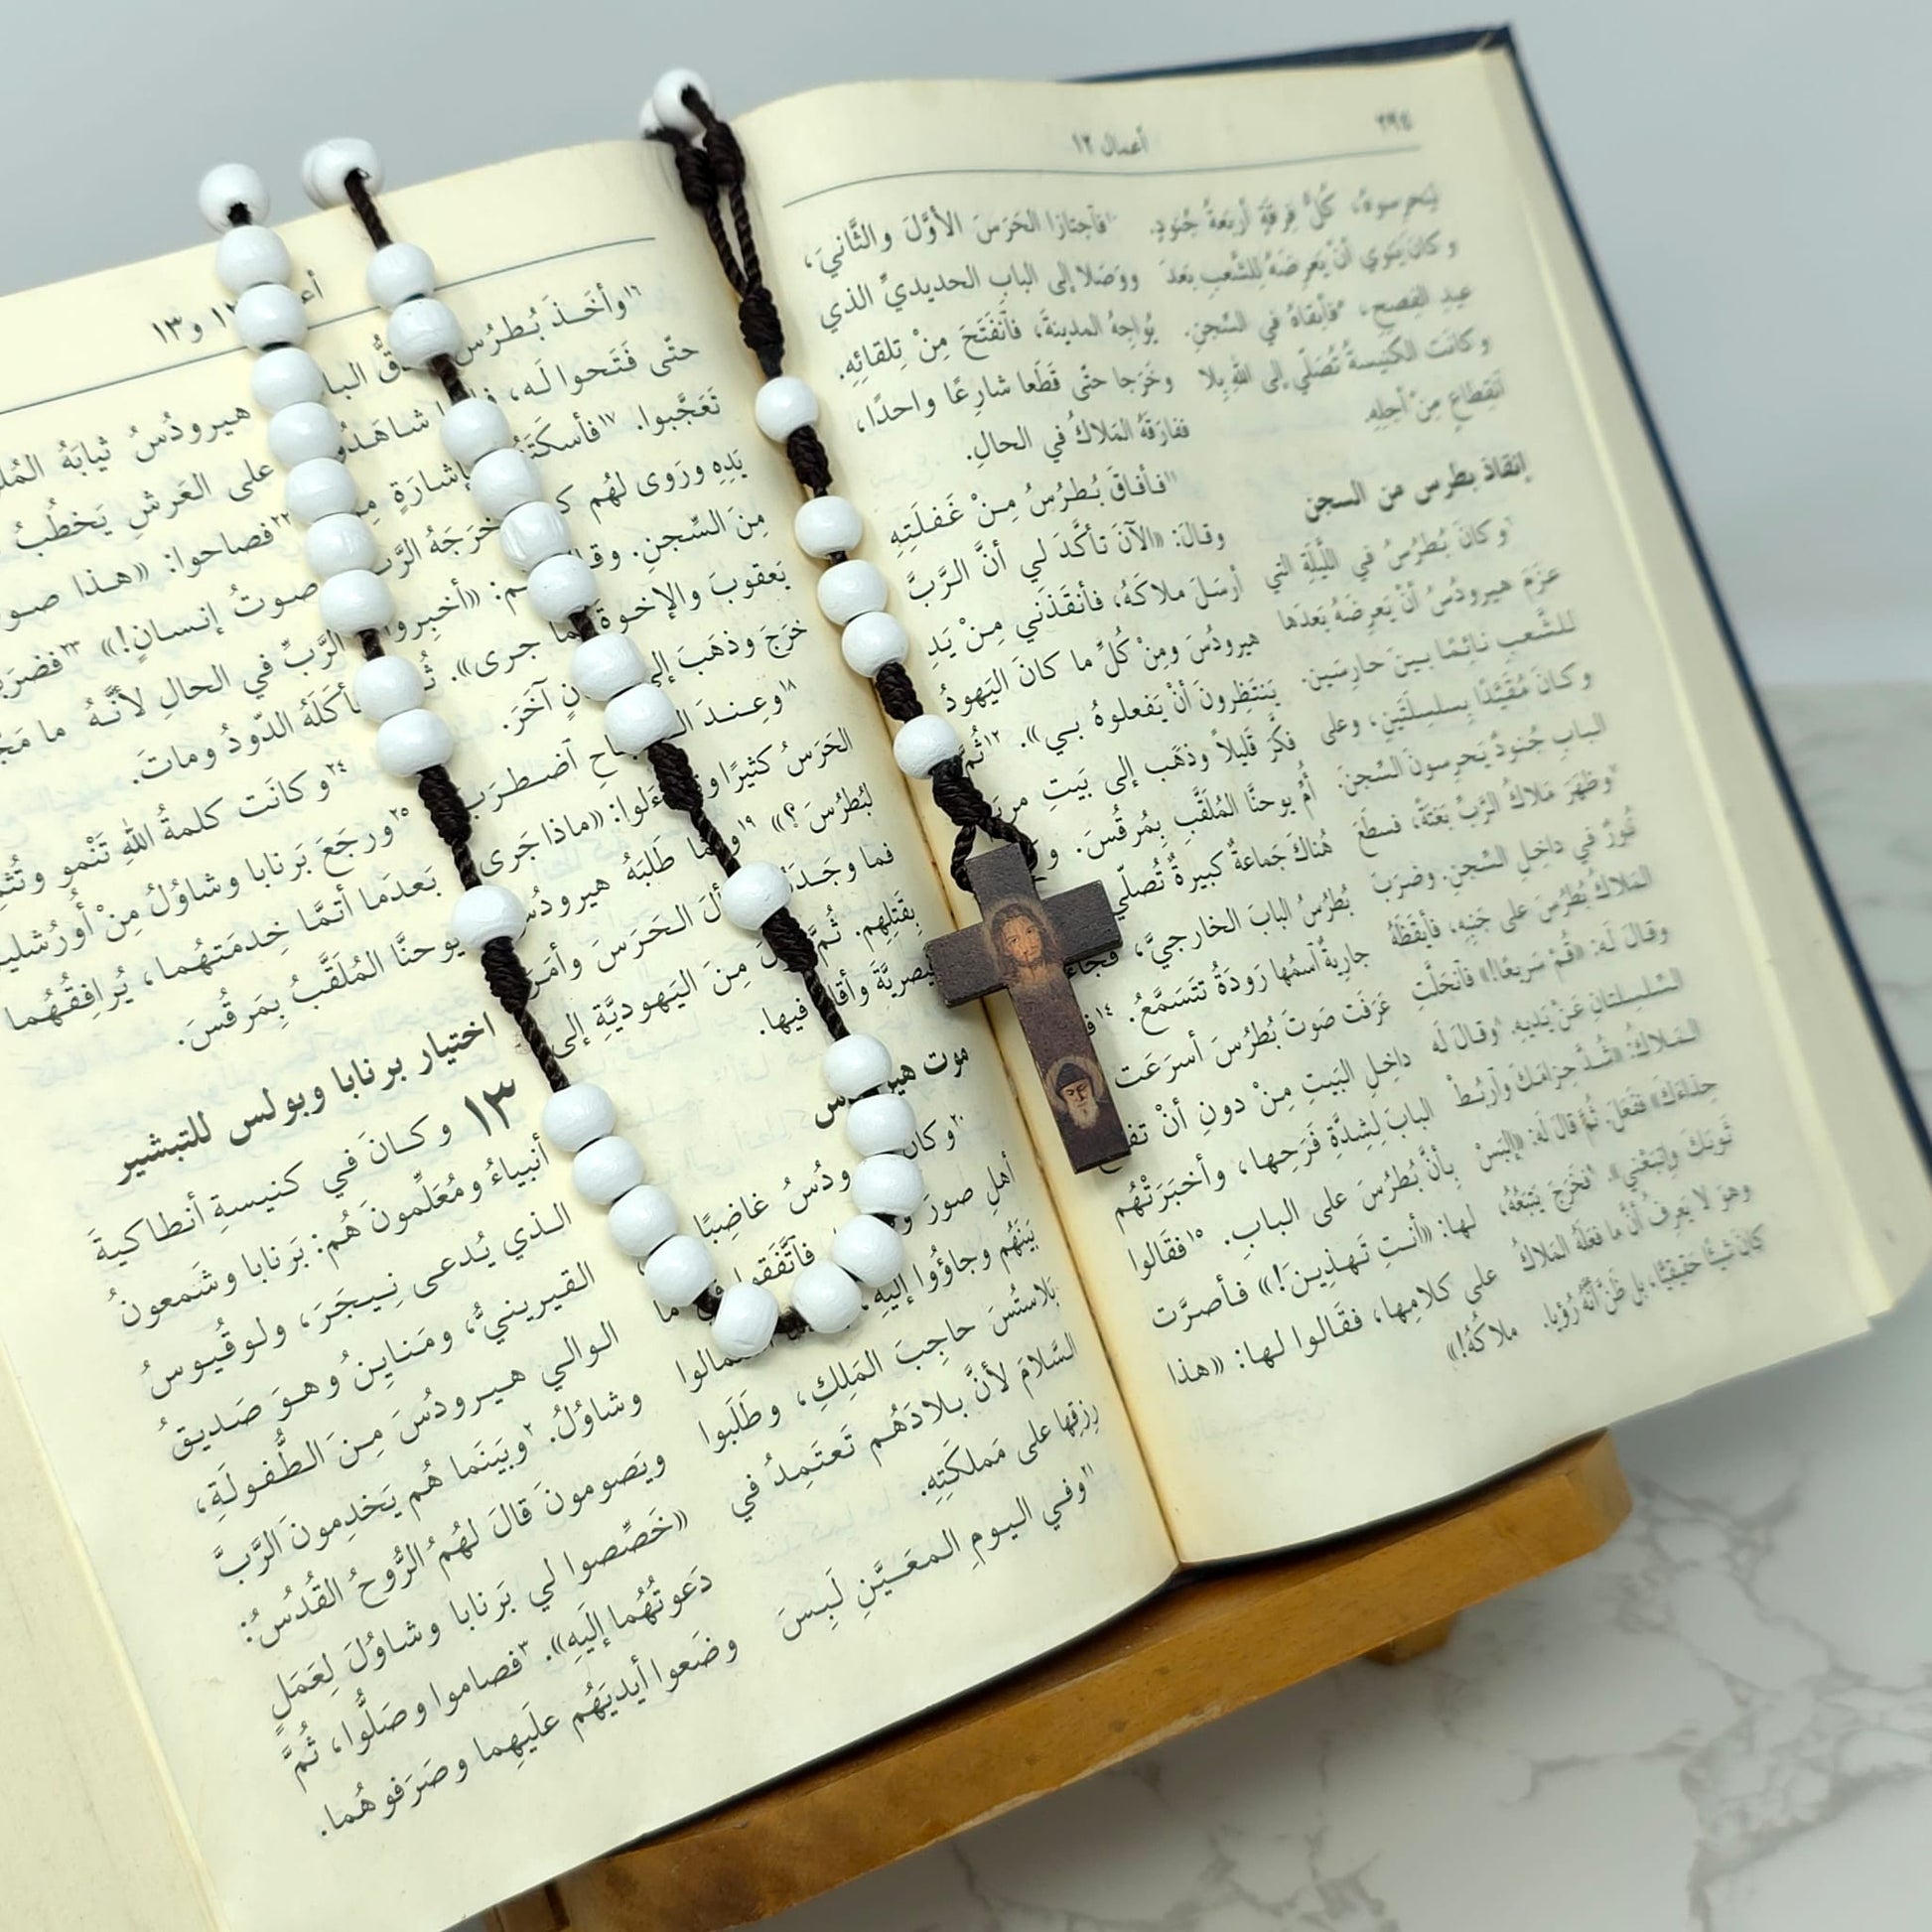 ٢٩٤
أعمال ١٢
يَحرسونَهُ، كُلُّ فِرقَةٍ أربَعَةُ جُنودٍ.
وكانَ يَنوي أنْ يَعرِضَهُ لِلشَّعبِ بَعدَ
عيدِ الفِصحِ، فأبقاهُ في السِّجنِ.
وكانَتِ الكنيسةُ تُصَلّي إلى اللهِ بِلا
اَنقِطاعٍ مِنْ أجلِهِ.
إنقاذ بطرس من السجن
وكانَ بُطرُسُ في اللَّيلَةِ التي
عزَمَ هيرودُسُ أنْ يَعرِضَهُ بَعدَها
للشَّعبِ نائِمًا بينَ حارِسَين.
وكانَ مُقَيَّدًا بِسِلسِلَتَينِ، وعلى
البابِ جُنودٌ يَحرِسونَ السِّجنَ.
وظهَرَ مَلاكُ الرَّبِّ بَغتَةً، فسطَعَ
نُورٌ في داخِلِ السِّجنِ. وضرَبَ
المَلاكُ بُطرُسَ على جَنبِهِ، فأيقَظَهُ
وقالَ لَه: «قُمْ سَريعًا!» فاَنحَلَّتِ
السِّلسِلتانِ عَنْ يَدَيهِ. وقالَ لَه
المَلاكُ: «شُدَّ حِزامَكَ واَربُطْ
حِذاءَكَ» ففَعَلَ. ثُمَّ قالَ لَه: «إلبَسْ
ثَوبَكَ واتبَعْني». فخَرَجَ يَتبَعُهُ،
وهوَ لا يَعرِفُ أنَّ ما فعَلَهُ المَلاكُ
كانَ شَيئًا حَقيقيًّا، بل ظَنَّ أنَّهُ رُؤيا.
١٠فاَجتازا الحَرَسَ الأوَّلَ والثَّانيَ،
ووَصَلا إلى البابِ الحديديِّ الذي
يُواجِهُ المدينةَ، فاَنفَتَحَ مِنْ تِلقائِهِ.
وخَرَجا حتّى قَطَعا شارِعًا واحدًا،
ففارَقَهُ المَلاكُ في الحالِ.
١١فأفاقَ بُطرُسُ مِنْ غَفلَتِهِ
وقالَ: «الآنَ تأكَّدَ لي أنَّ الرَّبَّ
أرسَلَ ملاكَهُ، فأنقَذَني مِنْ يَدِ
هيرودُسَ ومِنْ كُلِّ ما كانَ اليَهودُ
يَنتَظِرونَ أنْ يَفعلوهُ بي». ١٢ثُمَّ
فكَّرَ قَليلاً وذهَب إلى بَيتِ مريَمَ
أُمِّ يوحنَّا المُلَقَّبِ بِمُرقُسَ.
هُناكَ جَماعةٌ كبيرةٌ تُصلّي
بُطرُسُ البابَ الخارجيَّ، فجاءَ
جاريةٌ اَسمُها رَودَةُ تَتَسَمَّعُ. ١٤
عَرَفَت صَوتَ بُطرُسَ أسرَعَت
داخِلِ البَيتِ مِنْ دونِ أنْ
البابَ لِشِدَّةِ فَرَحِها، وأخبَرَتْهُم
بِأنَّ بُطرُسَ على البابِ. ١٥فقَالوا
لها: «أنتِ تَهذِينَ!» فأصرَّت
على كلامِها، فقَالوا لها: «هذا
ملاكُهُ!»
١٢ و١٣
١٦وأخَذَ بُطرُسُ
حتّى فَتَحوا لَه، شاهَدُ
تَعَجَّبوا. ١٧فأسكَتَ بإشارَةٍ
يَدِهِ ورَوى لهُم خرَجَهُ الرَّبُّ
مِنَ السِّجنِ. «أخبِروا
يَعقوبَ والإخوةَ جرى».
خرَجَ وذهَبَ إلى آخَرَ.
١٨وعِندَ اَضطرَبَ
الحَرَسُ كثيرًا «ماذا جَرى
لبُطرُسَ؟» ١٩ طَلَبَهُ هيرودُ
فما الحَرَسَ وأمَرَ
بقَتلِهِم. ثُمَّ مِنَ اليَهوديَّةِ إلى
فيها.
موت
٢٠وكانَ غاضِبًا
أهلِ صورَ فاَتَّفَقوا
بَينَهُم وجاؤُوا إلَيهِ،
بلاستُسَ حاجِبَ المَلِكِ، وطَلَبوا
السَّلامَ لأنَّ بلادَهُم تَعتَمِدُ في
رِزقِها على مَملكَتِهِ.
٢١وفي اليومِ المعَيَّنِ لَبِسَ
هيرودُسُ ثيابَهُ
على العَرشِ يَخطُبُ
٢٢فصاحوا: «هذا
صوتُ إنسانٍ!» ٢٣
الرَّبِّ في الحالِ لأنَّهُ ما
أكَلَهُ الدّودُ وماتَ.
٢٤وكانَت كلمةُ اللهِ تَنْمو
٢٥ورجَعَ بَرنابا وشاوُلُ مِنْ
بَعدَما أتمَّا خِدمَتَهُما، يُرافِقُهُما
يوحنَّا المُلَقَّبُ بِمَرقُسَ.
اختيار برنابا وبولس للتبشير
١٣ وكانَ في كنيسةِ أنطاكيةَ
أنبياءُ ومُعَلِّمونَ هُم: بَرنابا وشَمعونُ
الذي يُدعى نِيجَرَ، ولوقُيوسُ
القيرينيُّ، ومَناينُ وهوَ صَديقُ
الوالي هيرودُسَ مِنَ الطُّفولَةِ،
وشاوُلُ. ٢وبَينَما هُم يَخدِمونَ الرَّبَّ
ويَصومونَ قالَ لهُمُ الرُّوحُ القُدُسُ:
«خَصِّصوا لي بَرنابا وشاوُلَ لِعَمَلٍ
دَعوتُهُما إلَيهِ». ٣فصاموا وصَلُّوا، ثُمَّ
وضَعوا أيديَهُم علَيهِما وصَرَفوهُما.